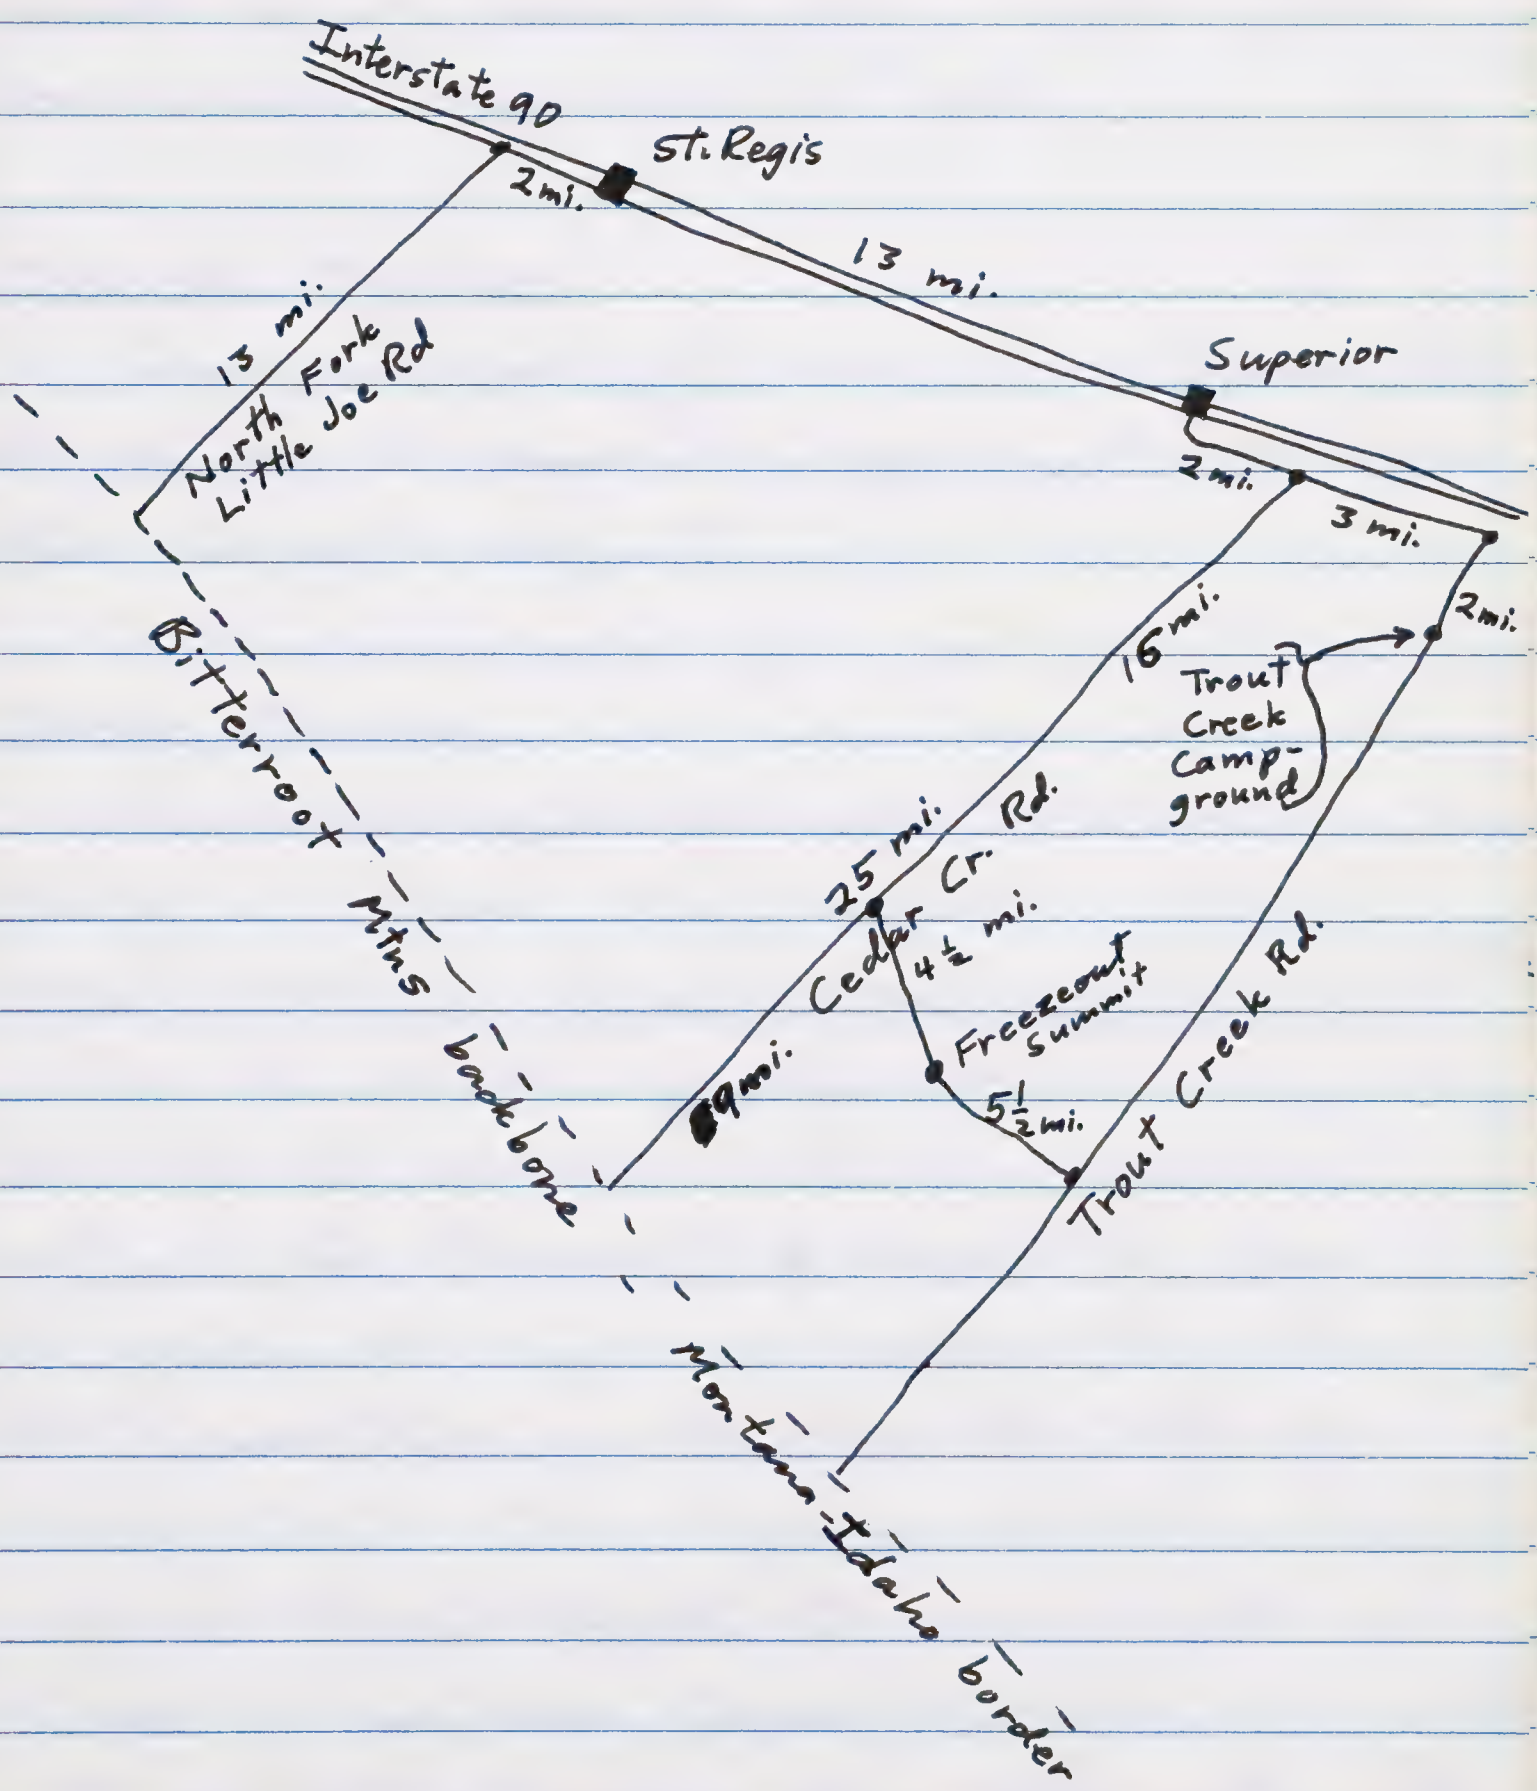 Interstate 90
St. Regis
2 mi.
13 mi.
Superior
13 mi.
North Fork
Little Joe Rd
2 mi.
3 mi.
2 mi.
16 mi.
Trout
Creek
Camp-
ground
Bitterroot Mtns backbone
25 mi.
Cedar Cr. Rd.
4 1/2 mi.
Freezeout
Summit
9 mi.
5 1/2 mi.
Trout Creek Rd.
Montana-Idaho border